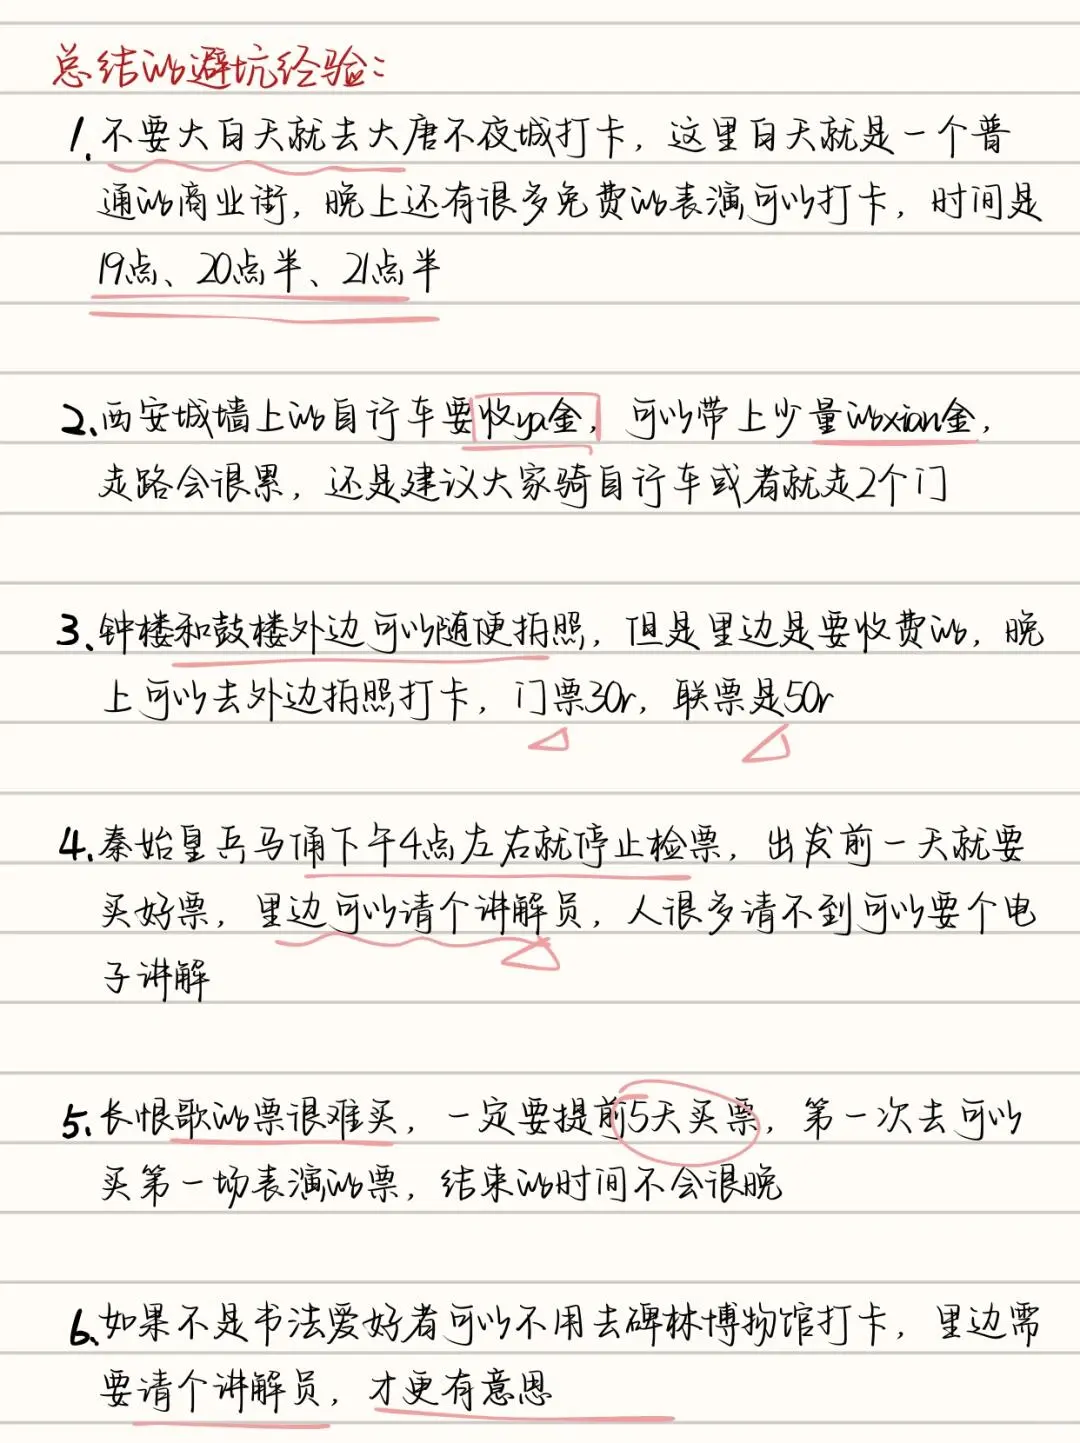 总结的避坑经验：
1.不要大白天就去大唐不夜城打卡，这里白天就是一个普
通的商业街，晚上还有很多免费的表演可以打卡，时间是
19点、20点半、21点半
2.西安城墙上的自行车要收ya金，可以带上少量的xian金，
走路会很累，还是建议大家骑自行车或者就走2个门
3.钟楼和鼓楼外边可以随便拍照，但是里边是要收费的，晚
上可以去外边拍照打卡，门票30r，联票是50r
4.秦始皇兵马俑下午4点左右就停止检票，出发前一天就要
买好票，里边可以请个讲解员，人很多请不到可以要个电
子讲解
5.长恨歌的票很难买，一定要提前5天买票，第一次去可以
买第一场表演的票，结束的时间不会很晚
6.如果不是书法爱好者可以不用去碑林博物馆打卡，里边需
要请个讲解员，才更有意思